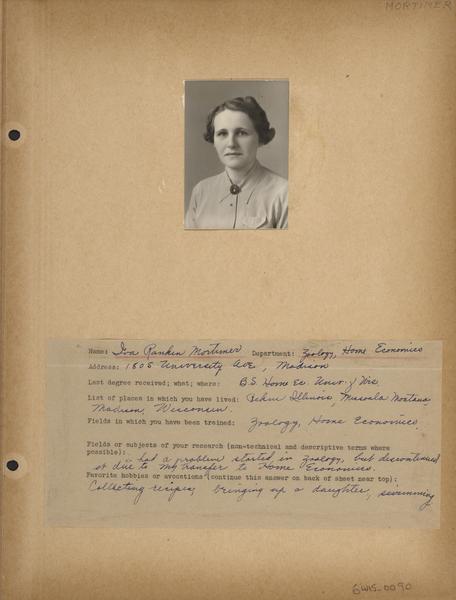 MORTIMER
Name: Iva Rankin Mortimer Department: Zoology, Home Economics
Address: 1805 University Ave, Madison
Last degree received; what; where: B.S. Home Ec. Univ. of Wis.
List of places in which you have lived: Pekin Illinois, Missoula Montana,
Madison, Wisconsin.
Fields in which you have been trained: Zoology, Home Economics.
Fields or subjects of your research (non-technical and descriptive terms where
possible):
I had a problem started in zoology, but discontinued
it due to my transfer to Home Economics.
Favorite hobbies or avocations (continue this answer on back of sheet near top):
Collecting recipes, bringing up a daughter, swimming
GWIS_0090